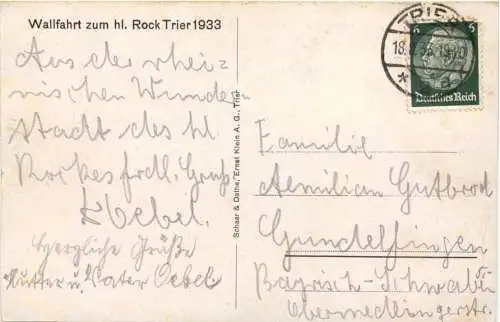 Wallfahrt zum hl. Rock Trier 1933
Aus der rhei-
nischen Wunder
stadt des hl
Rockes frdl. Gruß
Hebel.
Herzliche Grüße
Mutter u. Vater Oebel
Schaar & Dathe, Ernst Klein A. G., Trier
TRIER
18.
6 6
Deutsches Reich
Familie
Aemilian Gutbrod
Gundelfingen
Bayrisch-Schwaben
Obermedlingerstr.